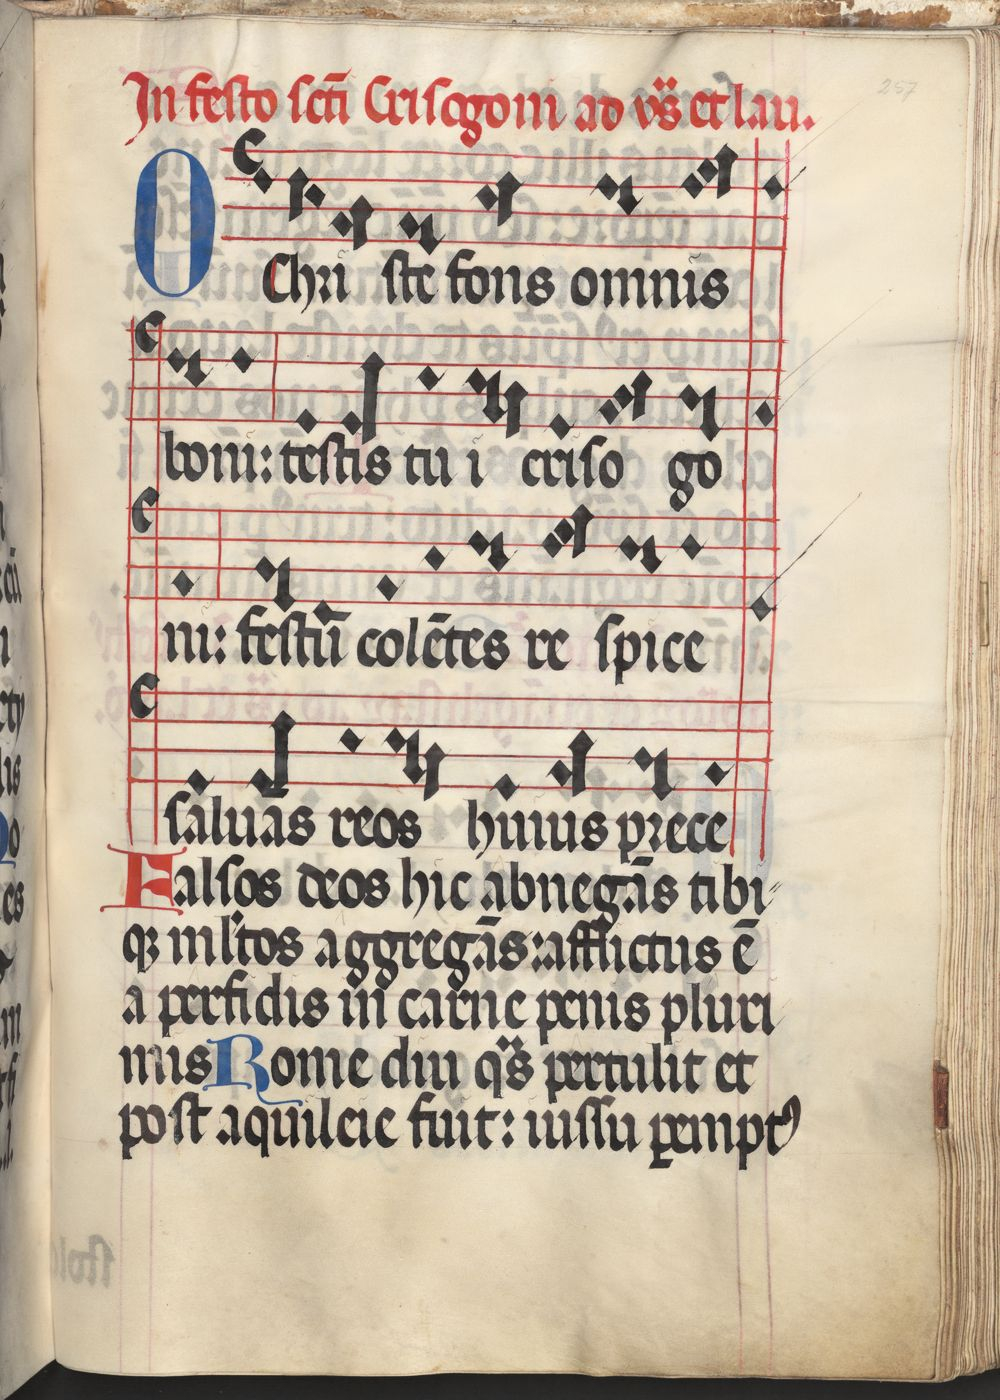 257
In festo scti Crisogoni ad vs̈ et lau.
O Chri ste fons omnis
boni: testis tu i criso go
ni: festū colētes re spice
saluās reos huius prece
Falsos deos hic abnegās tibi
qꝫ mltos aggregās: afflictus ē
a perfidis in carne penis pluri
mis Rome diu qs̈ pertulit et
post aquileie fuit: iussu pempt⁹